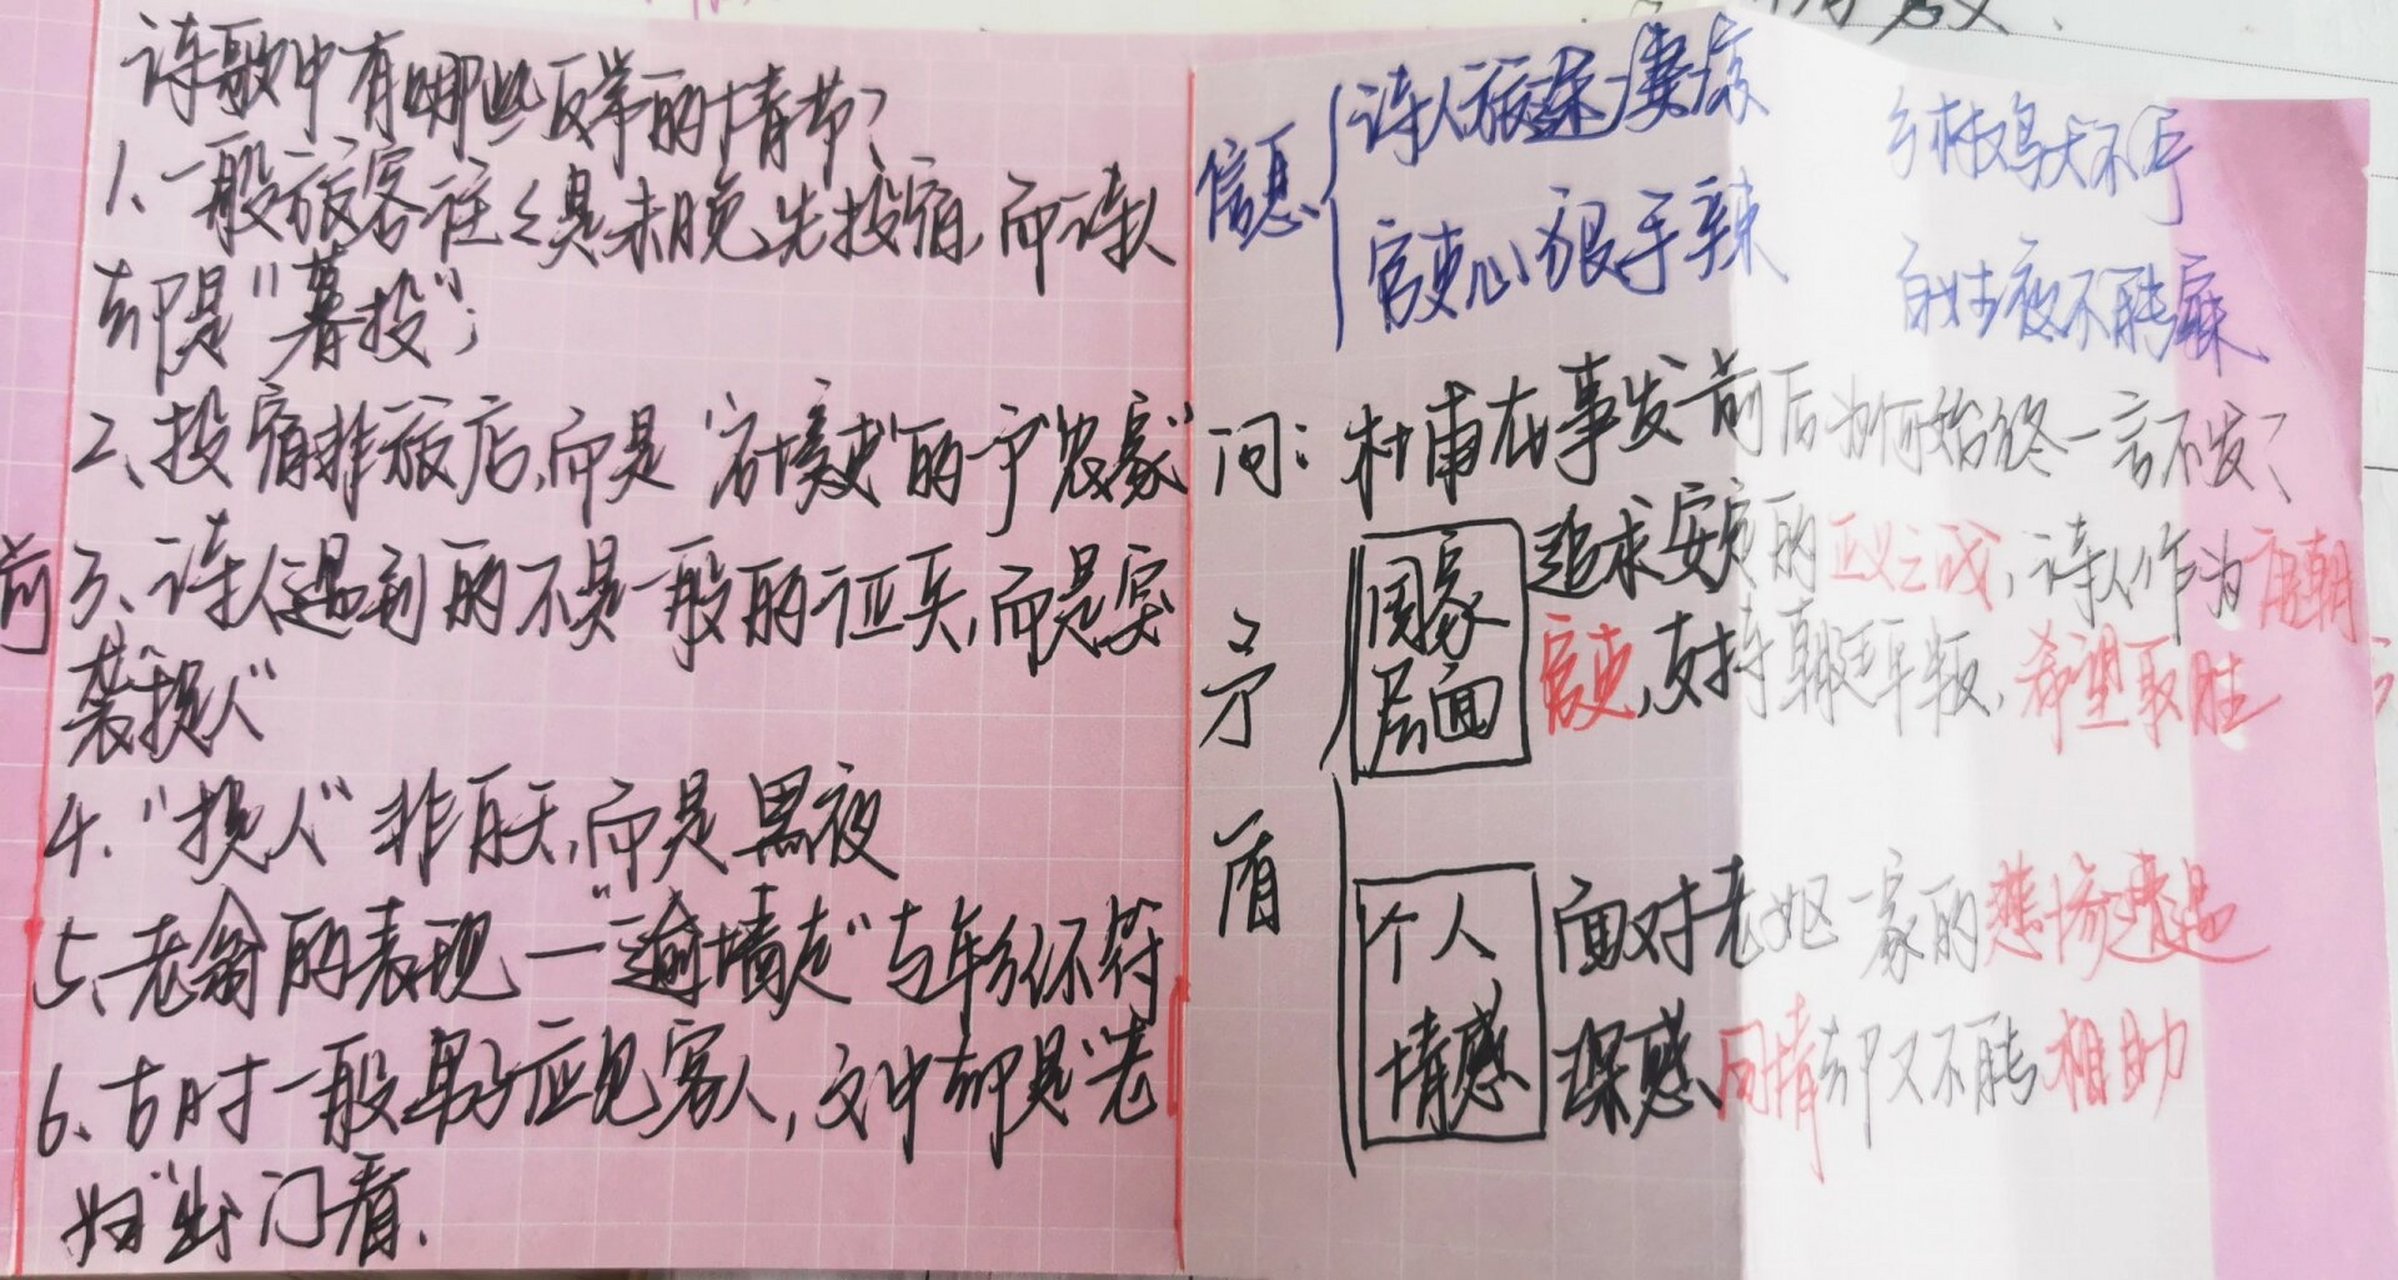 诗歌中有哪些反常的情节？
1、一般旅客往往是未晚先投宿，而诗人
却是"暮投"；
2、投宿非旅店，而是"石壕吏"的一户"农家"
3、诗人遇到的不是一般的征兵，而是突
袭"捉人"
4."捉人"非白天，而是黑夜
5、老翁的表现—"逾墙走"与年龄不符
6、古时一般男子应见客人，文中却是"老
妇"出门看.
信息
诗人旅途凄凉
官吏心狠手辣
乡村鸡犬不宁
百姓夜不能寐
问：杜甫在事发前后为何始终一言不发？
矛盾
国家
层面
追求安定的正义之战，诗人作为唐朝
官吏，支持朝廷平叛，希望取胜
个人
情感
面对老妪一家的悲惨遭遇
深感同情却又不能相助
前